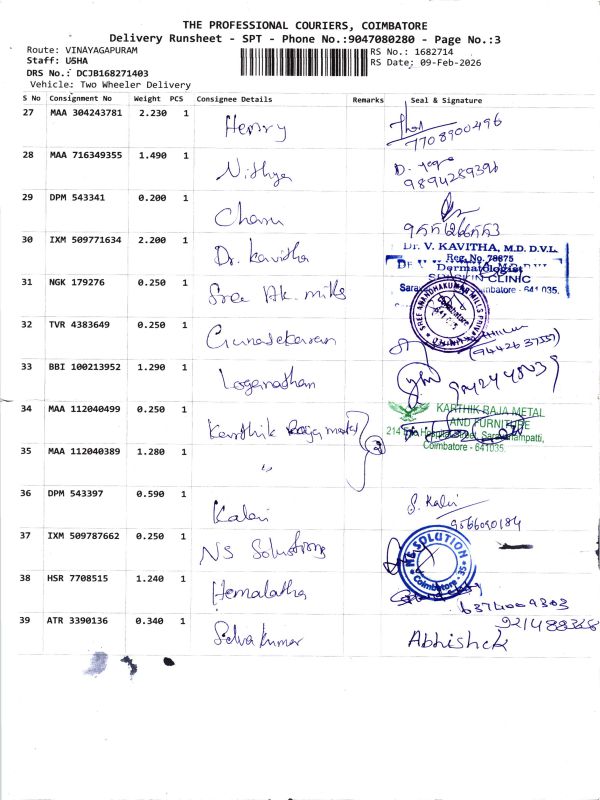 THE PROFESSIONAL COURIERS, COIMBATORE
Delivery Runsheet - SPT - Phone No.:9047080280 - Page No.:3
Route: VINAYAGAPURAM
Staff: USHA
DRS No.: DCJB168271403
Vehicle: Two Wheeler Delivery
RS No.: 1682714
RS Date: 09-Feb-2026
S No Consignment No Weight PCS Consignee Details Remarks Seal & Signature
27 MAA 304243781 2.230 1 Henry 7708900496
28 MAA 716349355 1.490 1 Nithya 9894289396
29 DPM 543341 0.200 1 Charu
30 IXM 509771634 2.200 1 Dr. Kavitha
Dr. V. KAVITHA, M.D. D.V.L.
Reg. No. 78675
Dermatologist
SKIN CLINIC
Coimbatore - 641 035.
31 NGK 179276 0.250 1 Sree Ak. mills
SREE ANANDHAKUMAR MILLS PRIVATE LIMITED
Coimbatore
32 TVR 4383649 0.250 1 Gunasekaran
33 BBI 100213952 1.290 1 Loganathan
34 MAA 112040499 0.250 1 Karthik Raja metal 2
KARTHIK RAJA METAL
AND FURNITURE
Coimbatore - 641035.
35 MAA 112040389 1.280 1 "
36 DPM 543397 0.590 1 Kalai S. Kalai
9566090184
37 IXM 509787662 0.250 1 NS Solutions
NS SOLUTION
Coimbatore - 35
38 HSR 7708515 1.240 1 Hemalatha
6374009303
39 ATR 3390136 0.340 1 Selvakumar Abhishek